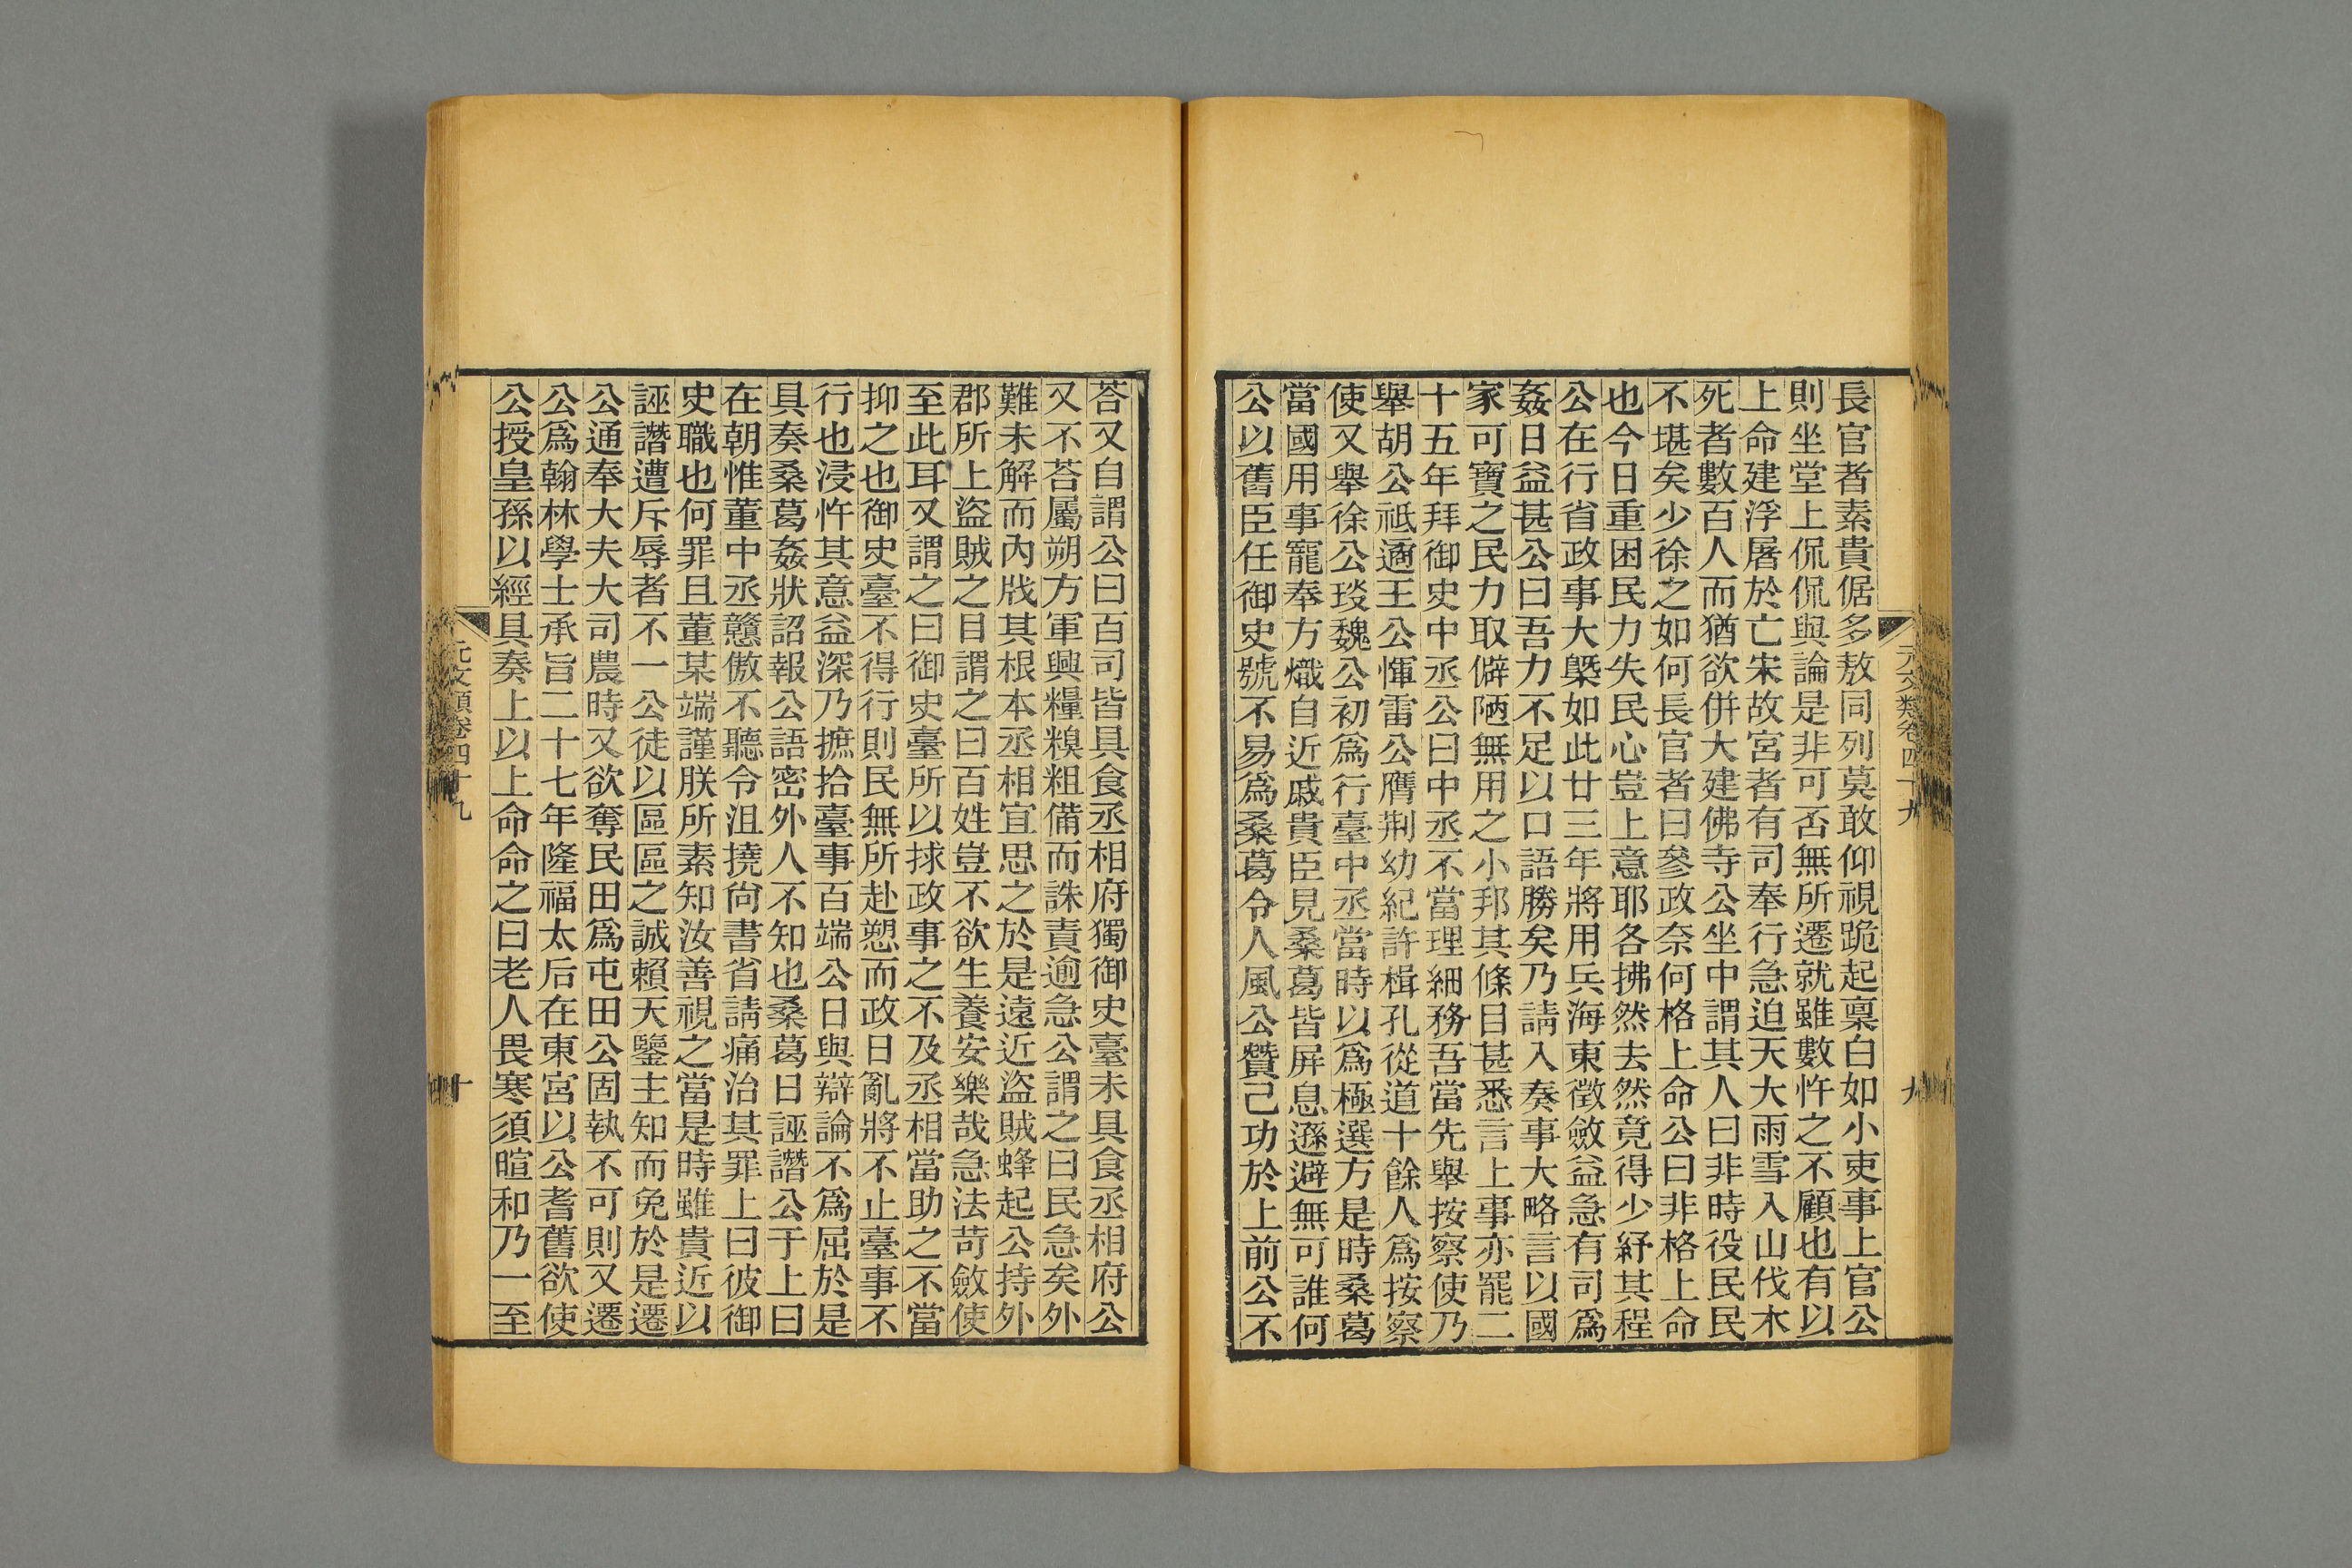 元文類卷四十九
九
長官者素貴倨多敖同列莫敢仰視跪起稟白如小吏事上官公
則坐堂上侃侃與論是非可否無所遷就雖數忤之不顧也有以
上命建浮屠於亡宋故宮者有司奉行急迫天大雨雪入山伐木
死者數百人而猶欲併大建佛寺公坐中謂其人曰非時役民民
不堪矣少徐之如何長官者曰參政奈何格上命公曰非格上命
也今日重困民力失民心豈上意耶各拂然去然竟得少紓其程
公在行省政事大槩如此廿三年將用兵海東徵斂益急有司爲
姦日益甚公曰吾力不足以口語勝矣乃請入奏事大略言以國
家可寶之民力取僻陋無用之小邦其條目甚悉言上事亦罷二
十五年拜御史中丞公曰中丞不當理細務吾當先舉按察使乃
舉胡公祗遹王公惲雷公膺荆幼紀許楫孔從道十餘人爲按察
使又舉徐公琰魏公初爲行臺中丞當時以爲極選方是時桑葛
當國用事寵奉方熾自近戚貴臣見桑葛皆屏息遜避無可誰何
公以舊臣任御史號不易爲桑葛令人風公贊己功於上前公不
荅又自謂公曰百司皆具食丞相府獨御史臺未具食丞相府公
又不荅屬朔方軍興糧糗粗備而誅責逾急公謂之曰民急矣外
難未解而內戕其根本丞相宜思之於是遠近盜賊蜂起公持外
郡所上盜賊之目謂之曰百姓豈不欲生養安樂哉急法苛斂使
至此耳又謂之曰御史臺所以捄政事之不及丞相當助之不當
抑之也御史臺不得行則民無所赴愬而政日亂將不止臺事不
行也浸忤其意益深乃摭拾臺事百端公日與辯論不爲屈於是
具奏桑葛姦狀詔報公語密外人不知也桑葛日誣譖公于上曰
在朝惟董中丞戇傲不聽令沮撓尙書省請痛治其罪上曰彼御
史職也何罪且董某端謹朕所素知汝善視之當是時雖貴近以
誣譖遭斥辱者不一公徒以區區之誠賴天鑒主知而免於是遷
公通奉大夫大司農時又欲奪民田爲屯田公固執不可則又遷
公爲翰林學士承旨二十七年隆福太后在東宮以公耆舊欲使
公授皇孫以經具奏上以上命命之曰老人畏寒須暄和乃一至
元文類卷四十九
十